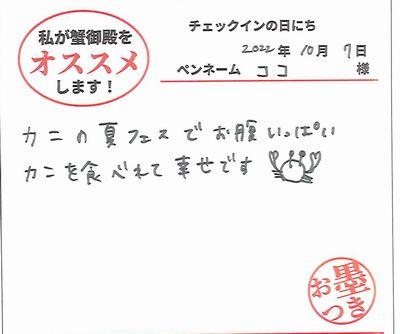 私が蟹御殿を
オススメ
します！
チェックインの日にち
2022年 10月 7日
ペンネーム ココ 様
カニの夏フェスでお腹いっぱい
カニを食べれて幸せです
お墨つき